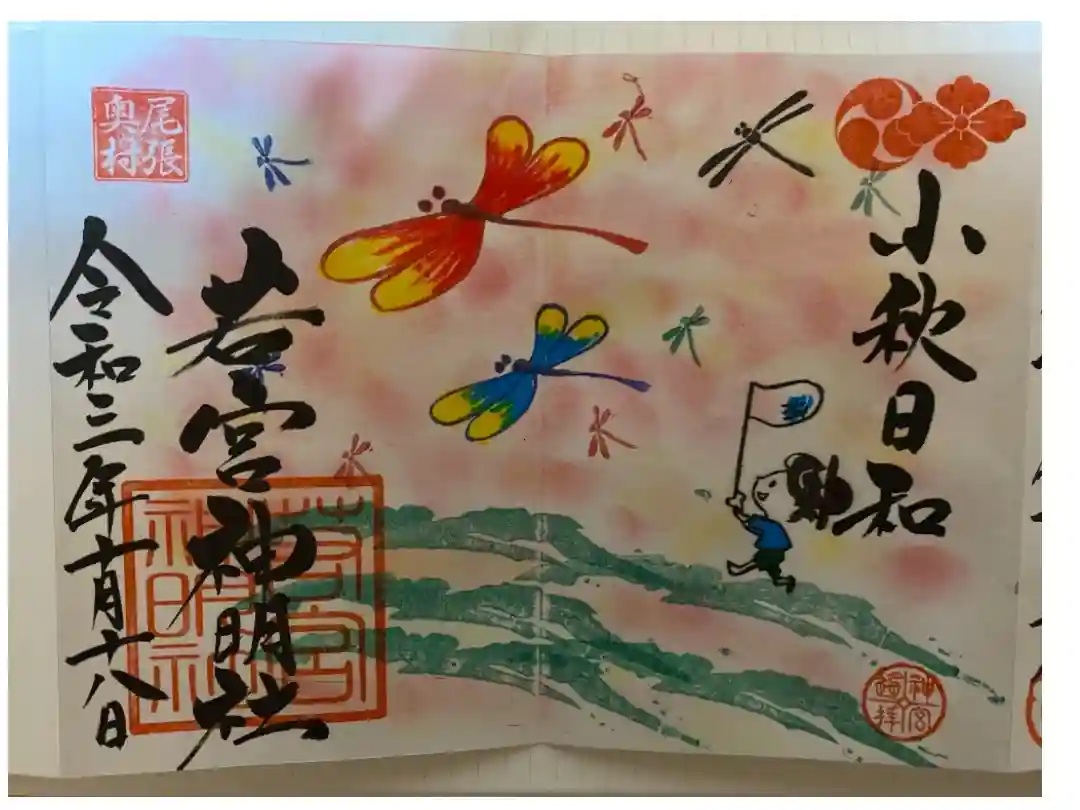 小秋日和
神宮
遙拝
若宮神明社
若宮
神明社
尾張
奥村
令和三年十月十八日